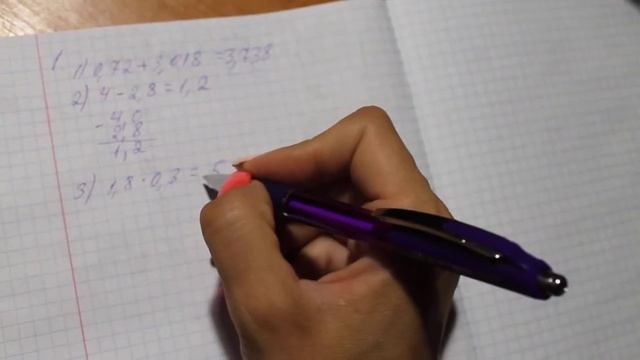 1 1) 0,72 + 3,018 = 3,738
2) 4 - 2,8 = 1,2
- 4,0
2,8
1,2
3) 1,8 · 0,3 = 5